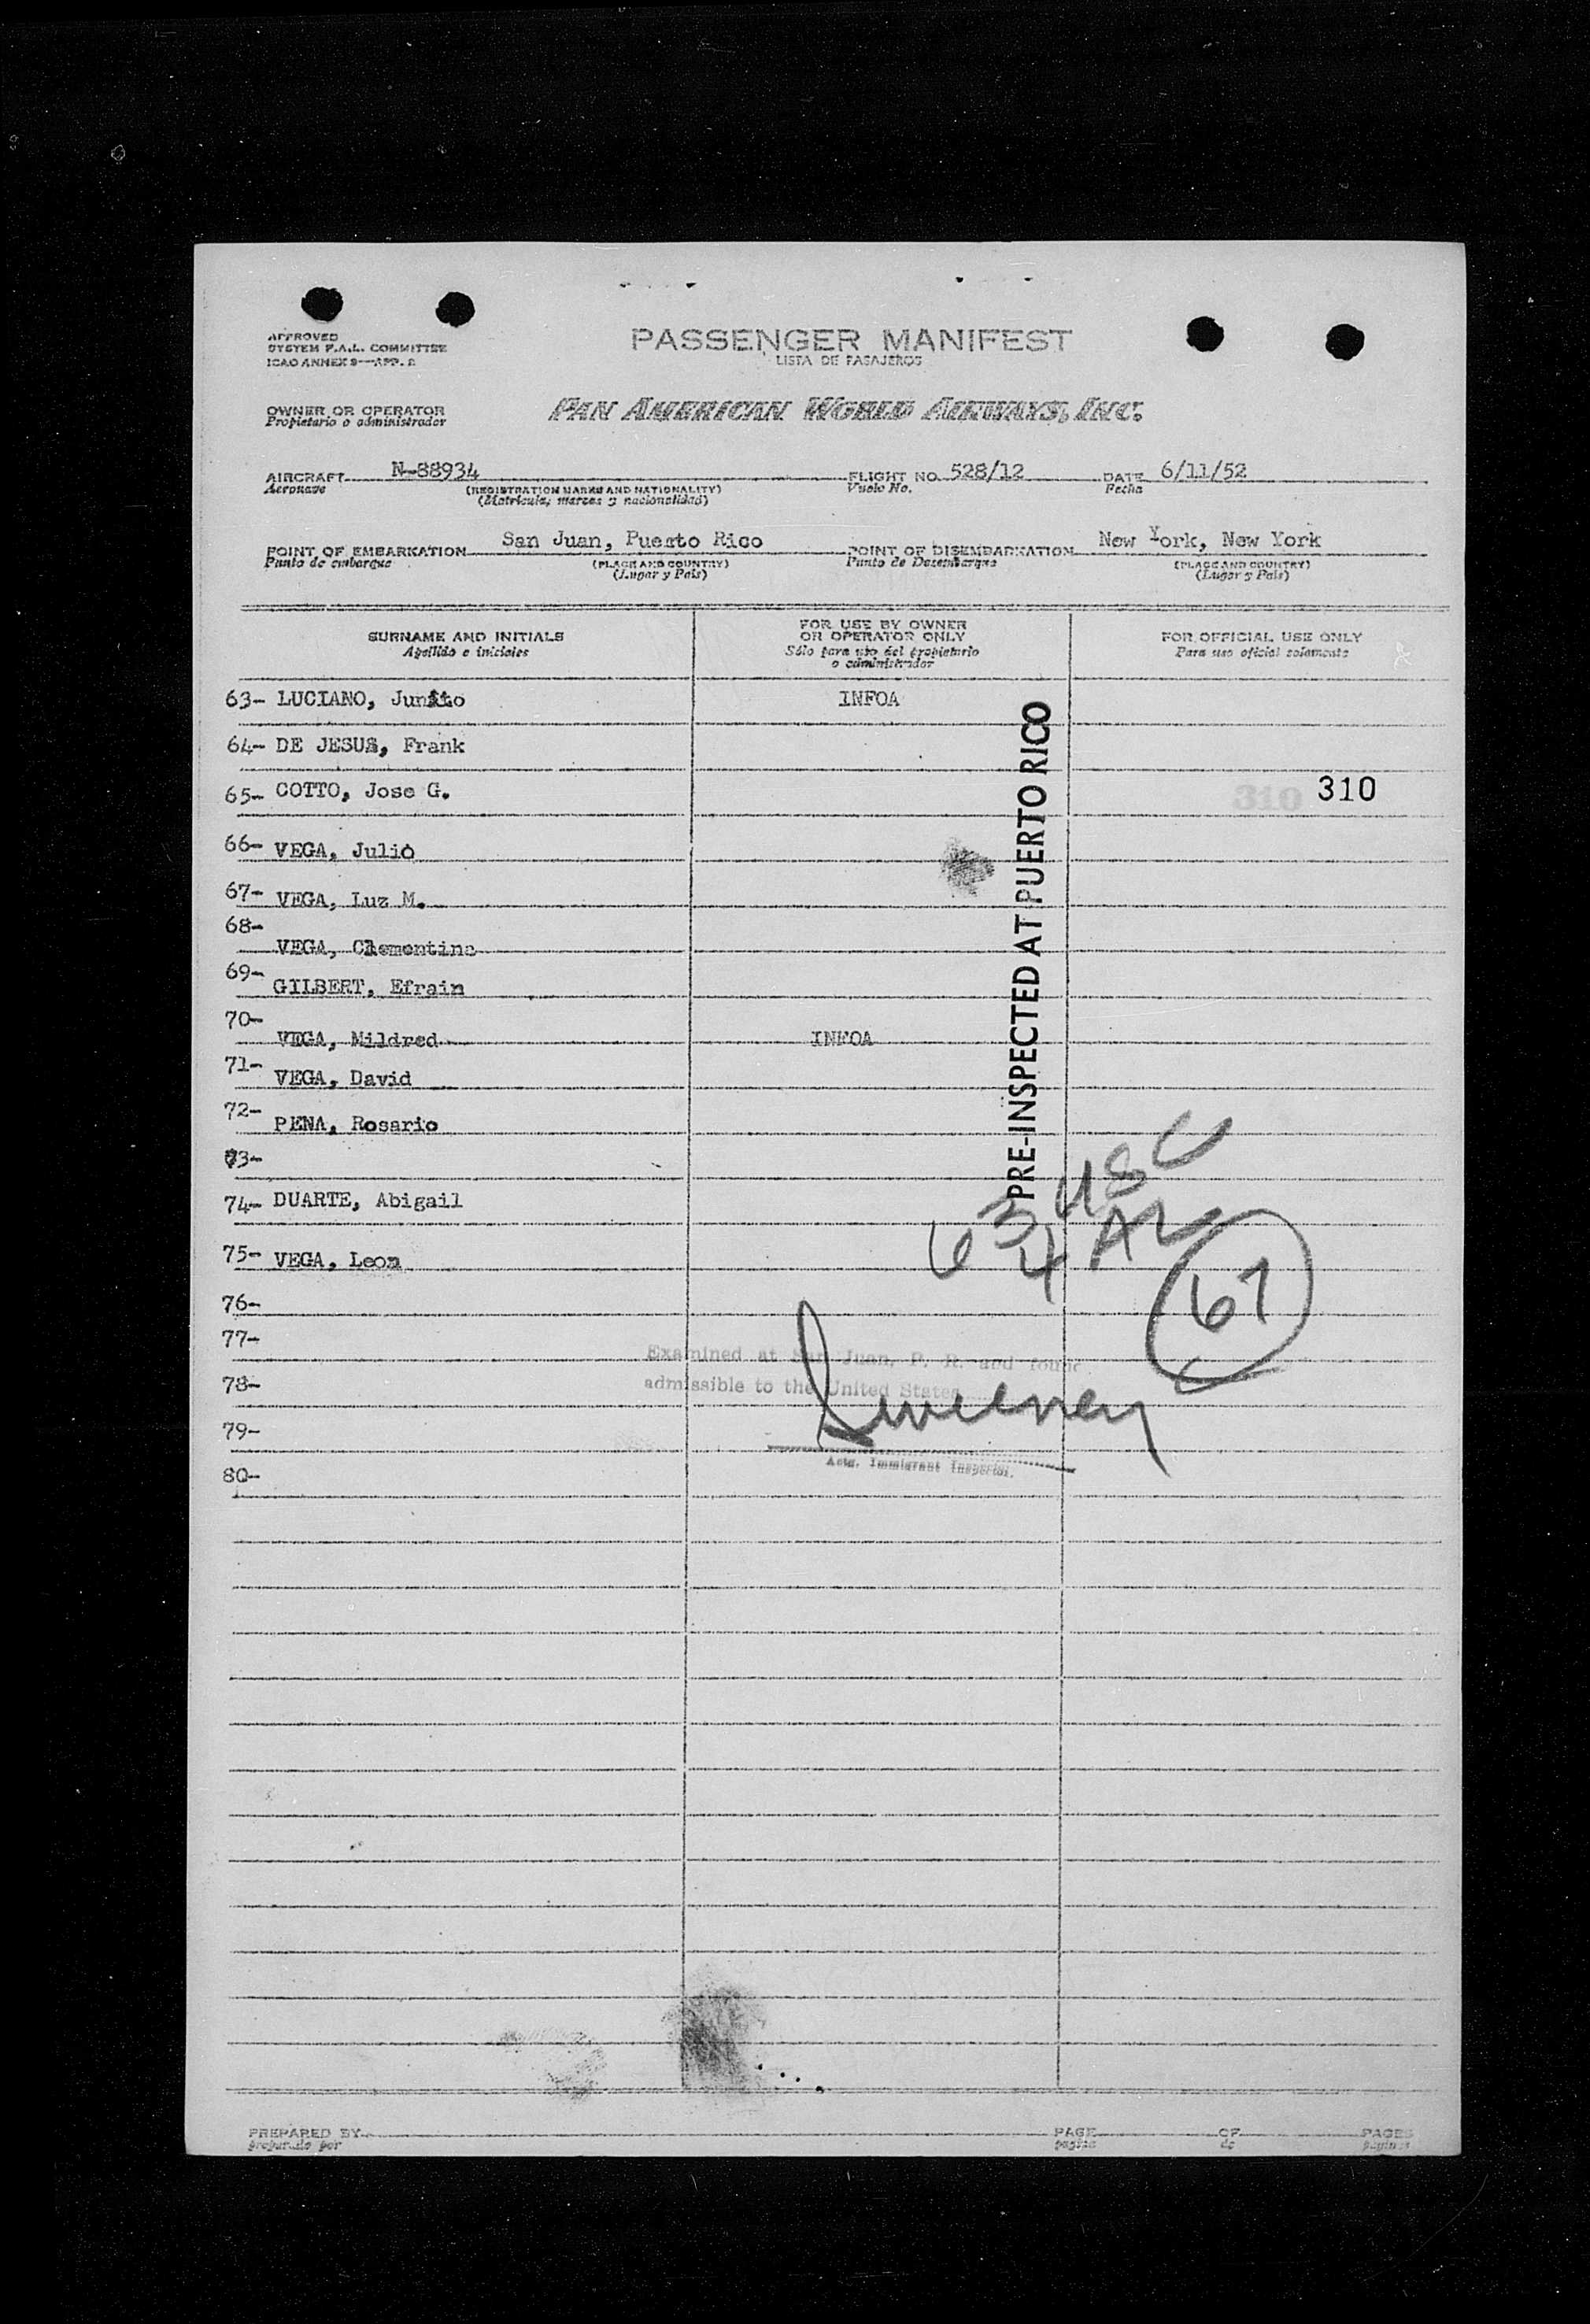 APPROVED
SYSTEM F.A.L. COMMITTEE
ICAO ANNEX 9—APP. 2
PASSENGER MANIFEST
LISTA DE PASAJEROS
OWNER OR OPERATOR
Propietario o administrador
PAN AMERICAN WORLD AIRWAYS, INC.
AIRCRAFT N-88934 FLIGHT NO. 528/12 DATE 6/11/52
Aeronave (REGISTRATION MARKS AND NATIONALITY) Vuelo No. Fecha
(Matricula, marcas y nacionalidad)
POINT OF EMBARKATION San Juan, Puerto Rico POINT OF DISEMBARKATION New York, New York
Punto de embarque (PLACE AND COUNTRY) Punto de Desembarque (PLACE AND COUNTRY)
(Lugar y Pais) (Lugar y Pais)
SURNAME AND INITIALS
Apellido e iniciales
FOR USE BY OWNER
OR OPERATOR ONLY
Sólo para uso del propietario
o administrador
FOR OFFICIAL USE ONLY
Para uso oficial solamente
63- LUCIANO, Junito INFOA
64- DE JESUS, Frank
65- COTTO, Jose G. 310 310
66- VEGA, Julio
67- VEGA, Luz M.
68- VEGA, Clementina
69- GILBERT, Efrain
70- VEGA, Mildred INFOA
71- VEGA, David
72- PENA, Rosario
73-
74- DUARTE, Abigail
75- VEGA, Leon
76-
77-
78-
79-
80-
PRE-INSPECTED AT PUERTO RICO
63 USC
4 AL
67
Examined at San Juan, P. R. and found
admissible to the United States
Sweeney
Actg. Immigrant Inspector.
PREPARED BY PAGE OF PAGES
preparado por pagina de paginas